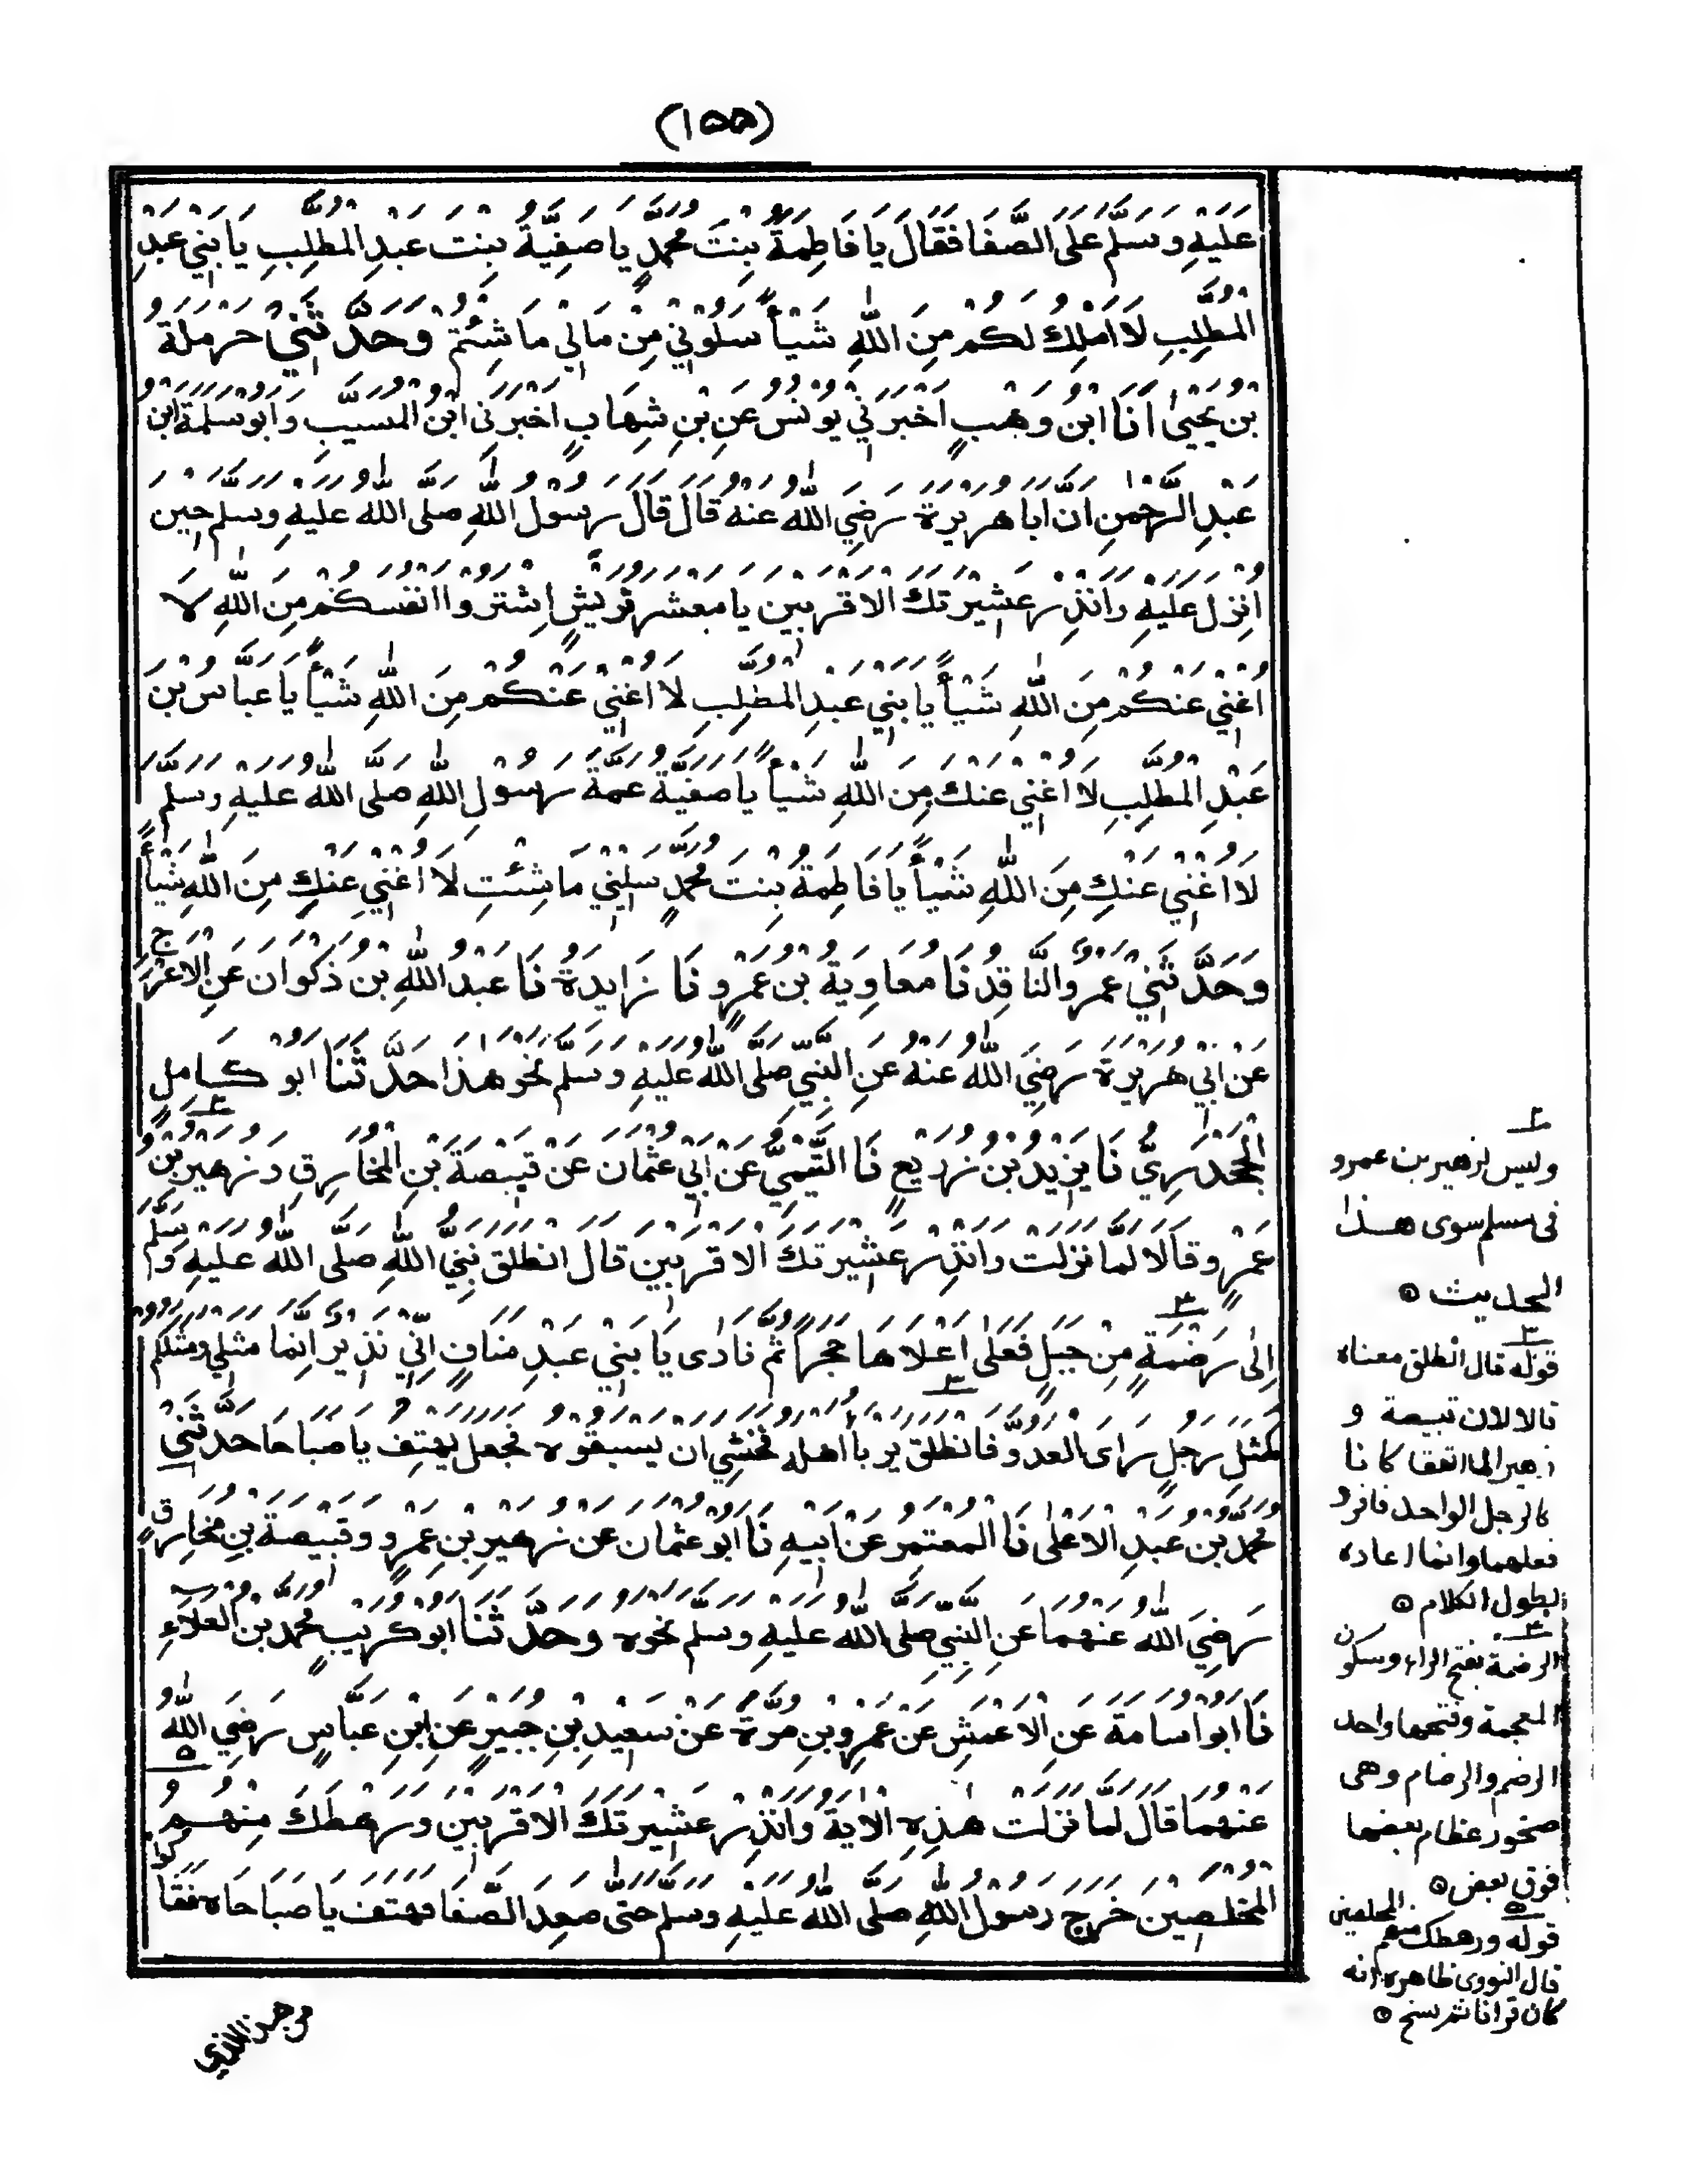 (١٥٥)
عَلَيْهِ وَسَلَّمَ عَلَى الصَّفَا فَقَالَ يَا فَاطِمَةُ بِنْتَ مُحَمَّدٍ يَا صَفِيَّةُ بِنْتَ عَبْدِ الْمُطَّلِبِ يَا بَنِيْ عَبْدِ
الْمُطَّلِبِ لَا اَمْلِكُ لَكُمْ مِنَ اللّٰهِ شَيْأً سَلُوْنِيْ مِنْ مَالِيْ مَا شِئْتُمْ وَحَدَّثَنِيْ حَرْمَلَةُ
بْنُ يَحْيٰى اَنَا ابْنُ وَهْبٍ اَخْبَرَنِيْ يُوْنُسُ عَنِ بْنِ شِهَابٍ اَخْبَرَنِى ابْنُ الْمُسَيَّبِ وَاَبُوْ سَلَمَةَ ابْنُ
عَبْدِ الرَّحْمٰنِ اَنَّ اَبَا هُرَيْرَةَ رَضِيَ اللّٰهُ عَنْهُ قَالَ قَالَ رَسُوْلُ اللّٰهِ صَلَّى اللّٰهُ عَلَيْهِ وَسَلَّمَ حِيْنَ
اُنْزِلَ عَلَيْهِ وَاَنْذِرْ عَشِيْرَتَكَ الْاَقْرَبِيْنَ يَا مَعْشَرَ قُرَيْشٍ اِشْتَرُوْا اَنْفُسَكُمْ مِنَ اللّٰهِ لَا
اُغْنِيْ عَنْكُمْ مِنَ اللّٰهِ شَيْأً يَا بَنِيْ عَبْدِ الْمُطَّلِبِ لَا اُغْنِيْ عَنْكُمْ مِنَ اللّٰهِ شَيْأً يَا عَبَّاسُ بْنَ
عَبْدِ الْمُطَّلِبِ لَا اُغْنِيْ عَنْكَ مِنَ اللّٰهِ شَيْأً يَا صَفِيَّةُ عَمَّةَ رَسُوْلِ اللّٰهِ صَلَّى اللّٰهُ عَلَيْهِ وَسَلَّمَ
لَا اُغْنِيْ عَنْكِ مِنَ اللّٰهِ شَيْأً يَا فَاطِمَةُ بِنْتَ مُحَمَّدٍ سَلِيْنِيْ مَا شِئْتِ لَا اُغْنِيْ عَنْكِ مِنَ اللّٰهِ شَيْأً
وَحَدَّثَنِيْ عَمْرٌو النَّاقِدُ نَا مُعَاوِيَةُ بْنُ عَمْرٍو نَا زَايِدَةُ نَا عَبْدُ اللّٰهِ بْنُ ذَكْوَانَ عَنِ الْاَعْرَجِ
عَنْ اَبِيْ هُرَيْرَةَ رَضِيَ اللّٰهُ عَنْهُ عَنِ النَّبِيِّ صَلَّى اللّٰهُ عَلَيْهِ وَسَلَّمَ نَحْوَ هٰذَا حَدَّثَنَا اَبُوْ كَامِلٍ
الْجَحْدَرِيُّ نَا يَزِيْدُ بْنُ زُرَيْعٍ نَا التَّيْمِيُّ عَنْ اَبِيْ عُثْمَانَ عَنْ قَبِيْصَةَ بْنِ الْمُخَارِقِ وَ زُهَيْرِ بْنِ
عَمْرٍو قَالَا لَمَّا نَزَلَتْ وَاَنْذِرْ عَشِيْرَتَكَ الْاَقْرَبِيْنَ قَالَ انْطَلَقَ نَبِيُّ اللّٰهِ صَلَّى اللّٰهُ عَلَيْهِ وَسَلَّمَ
اِلٰى رَضْمَةٍ مِنْ جَبَلٍ فَعَلٰى اَعْلَاهَا حَجَرًا ثُمَّ نَادٰى يَا بَنِيْ عَبْدِ مَنَافٍ اِنِّيْ نَذِيْرٌ اِنَّمَا مَثَلِيْ وَمَثَلُكُمْ
كَمَثَلِ رَجُلٍ رَاَى الْعَدُوَّ فَانْطَلَقَ يَرْبَأُ اَهْلَهُ فَخَشِيَ اَنْ يَسْبِقُوْهُ فَجَعَلَ يَهْتِفُ يَا صَبَاحَا حَدَّثَنِيْ
مُحَمَّدُ بْنُ عَبْدِ الْاَعْلٰى نَا الْمُعْتَمِرُ عَنْ اَبِيْهِ نَا اَبُوْ عُثْمَانَ عَنْ زُهَيْرِ بْنِ عَمْرٍو وَقَبِيْصَةَ بْنِ مُخَارِقٍ
رَضِيَ اللّٰهُ عَنْهُمَا عَنِ النَّبِيِّ صَلَّى اللّٰهُ عَلَيْهِ وَسَلَّمَ نَحْوَهُ وَحَدَّثَنَا اَبُوْ كُرَيْبٍ مُحَمَّدُ بْنُ الْعَلَاءِ
نَا اَبُوْ اُسَامَةَ عَنِ الْاَعْمَشِ عَنْ عَمْرِو بْنِ مُرَّةَ عَنْ سَعِيْدِ بْنِ جُبَيْرٍ عَنِ ابْنِ عَبَّاسٍ رَضِيَ اللّٰهُ
عَنْهُمَا قَالَ لَمَّا نَزَلَتْ هٰذِهِ الْاٰيَةُ وَاَنْذِرْ عَشِيْرَتَكَ الْاَقْرَبِيْنَ وَرَهْطَكَ مِنْهُمُ
الْمُخْلَصِيْنَ خَرَجَ رَسُوْلُ اللّٰهِ صَلَّى اللّٰهُ عَلَيْهِ وَسَلَّمَ حَتّٰى صَعِدَ الصَّفَا فَهَتَفَ يَا صَبَاحَاهُ فَقَالُوْا
٢
وليس لزهير بن عمرو
فى مسلم سوى هـذا
الحديث ٥
٣
قوله قال انطلق معناه
قالا لان قبيصة و
زهيرا لما اتفقا كانا
كالرجل الواحد فافرد
فعلهما وانما اعاده
لطول الكلام ٥
٤
الرضمة بفتح الراء وسكون
المعجمة وفتحها واحد
الرضم والرضام وهى
صخور عظام بعضها
فوق بعض ٥
٥
قوله ورهطك منهم المخلصين
قال النووى ظاهره انه
كان قرانا ثم نسخ ٥